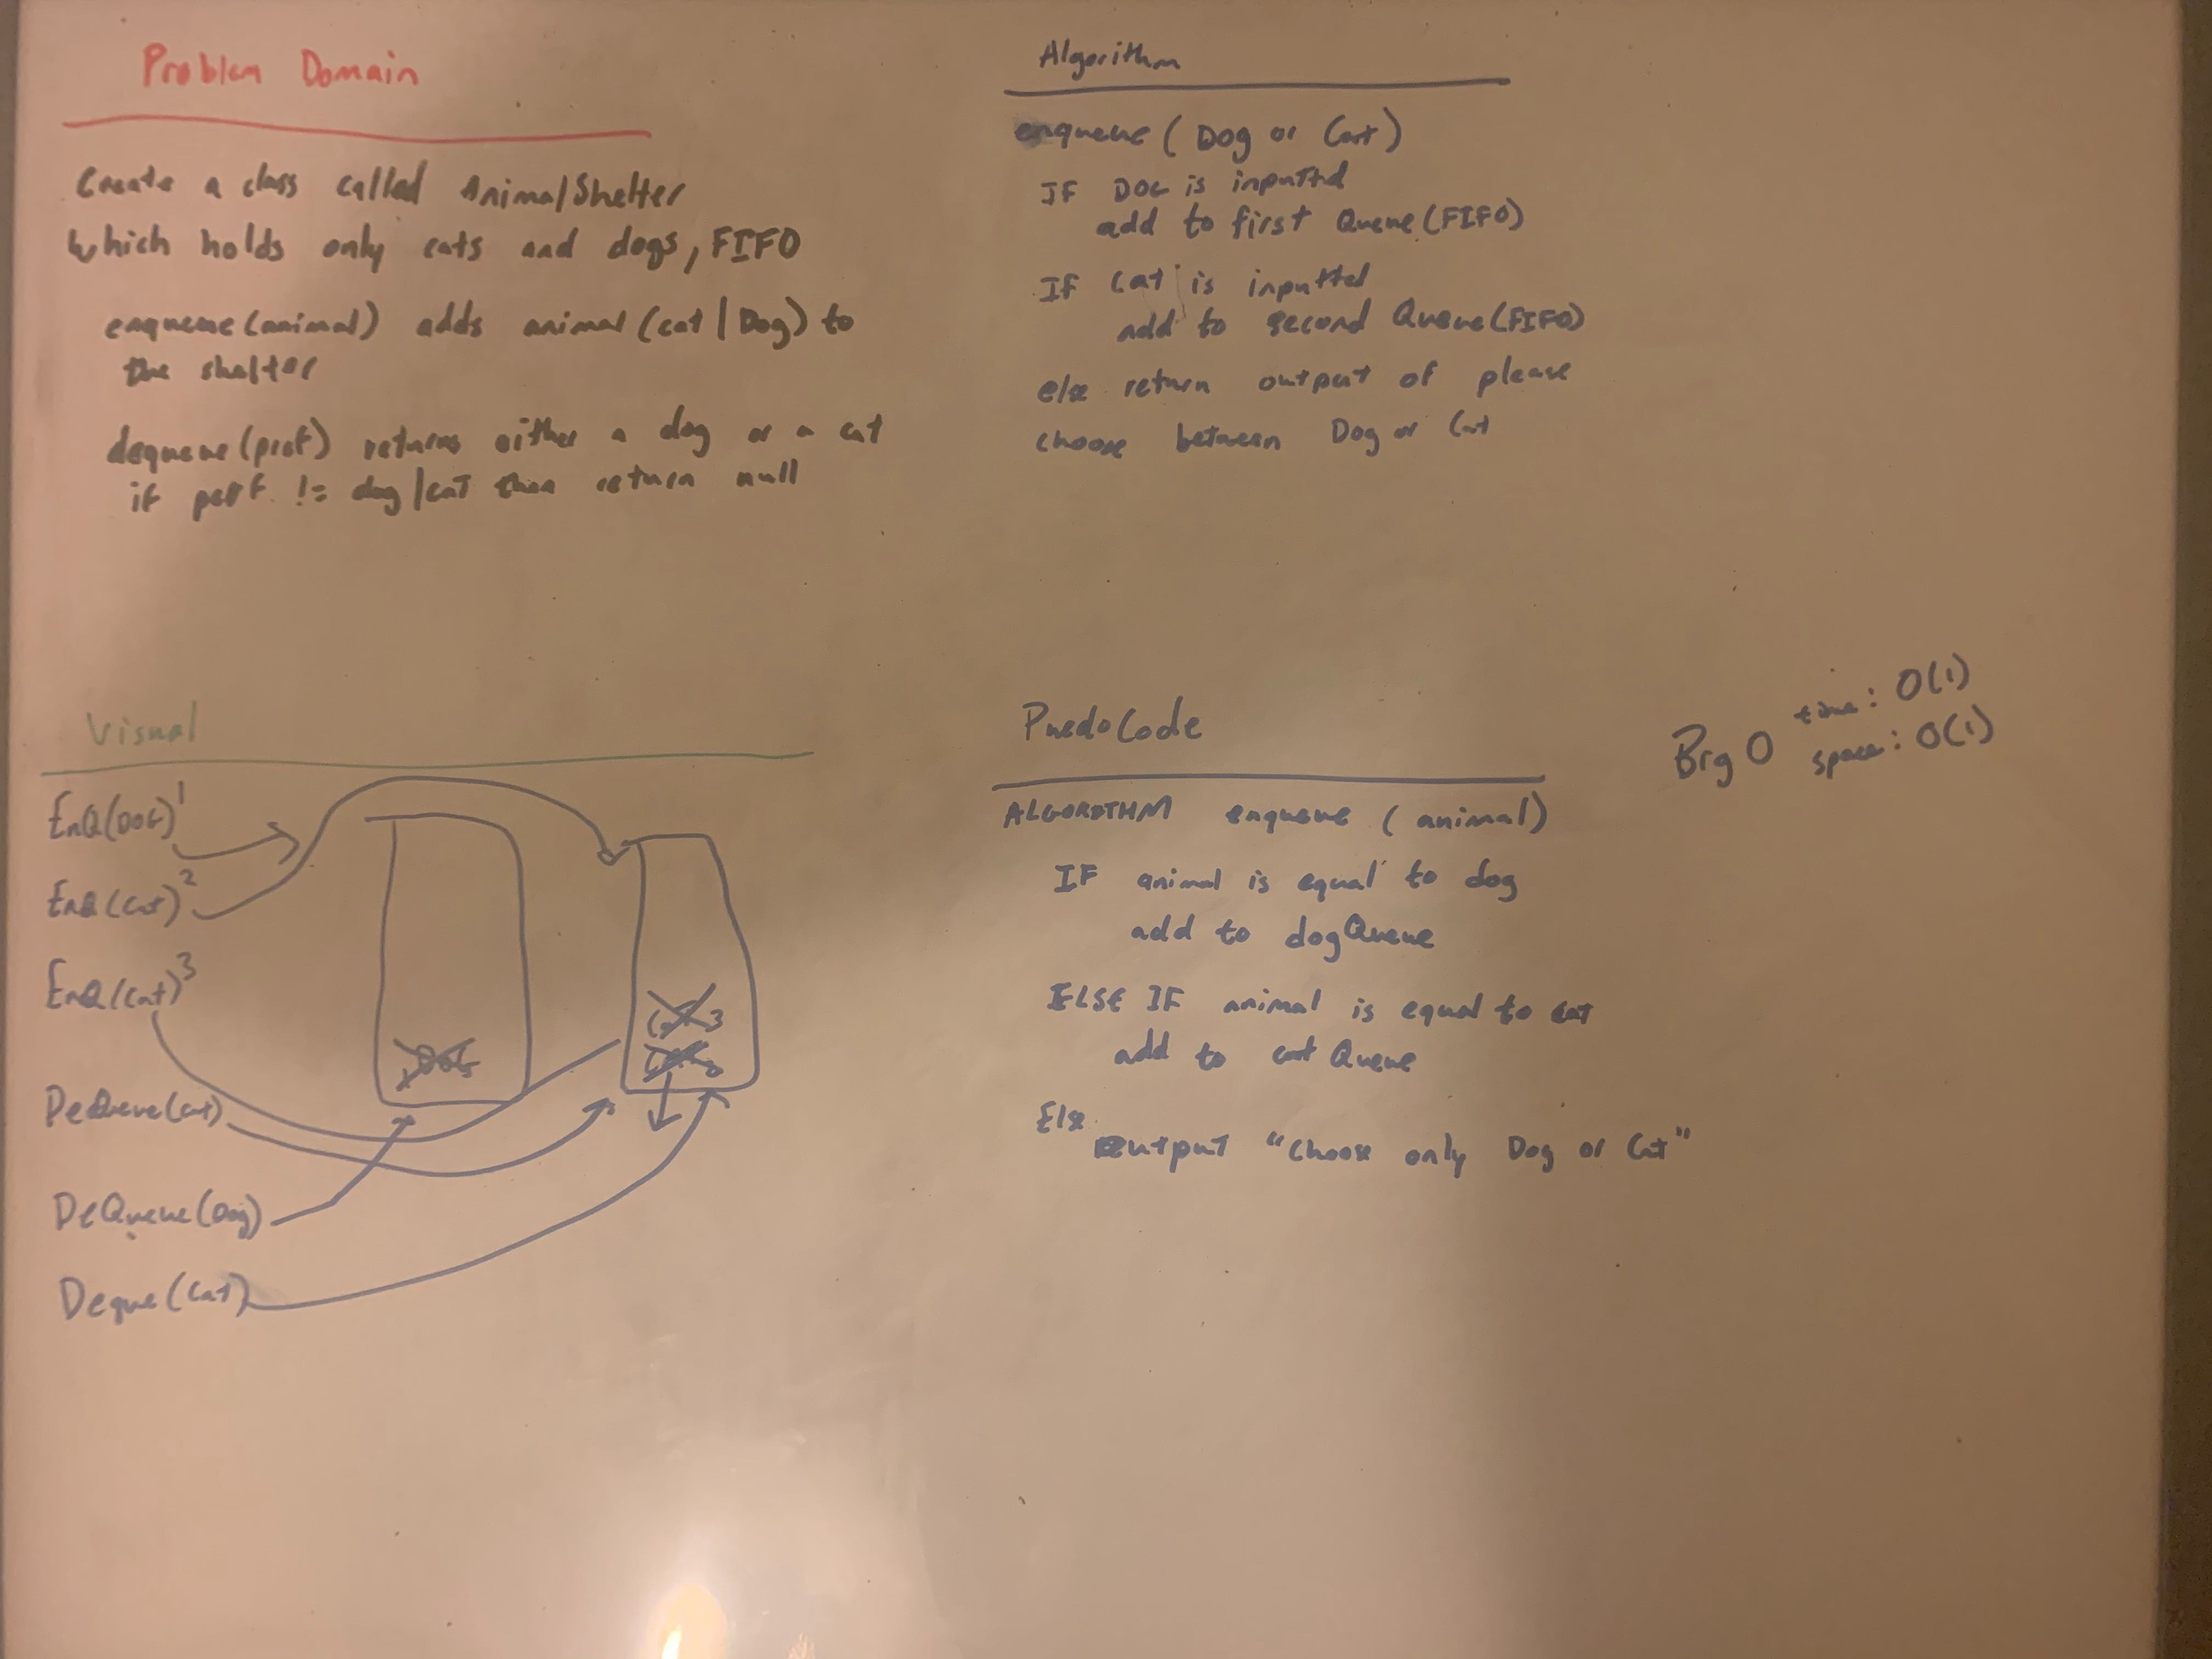 Problem Domain
Create a class called AnimalShelter
which holds only cats and dogs, FIFO
enqueue(animal) adds animal (cat | Dog) to
the shelter
dequeue(pref) returns either a dog or a cat
if perf. != dog/cat then return null
Algorithm
enqueue ( Dog or Cat)
IF DOG is inputted
add to first Queue (FIFO)
If Cat is inputted
add to second Queue (FIFO)
else return output of please
choose between Dog or Cat
Visual
EnQ(DOG) 1
EnQ(Cat) 2
EnQ(Cat) 3
DeQueue(cat)
DeQueue(Dog)
Deque(Cat)
DOG
Cat 3
PuedoCode
ALGORITHM enqueue ( animal)
IF animal is equal to dog
add to dogQueue
ELSE IF animal is equal to cat
add to cat Queue
Else
output "Choose only Dog or Cat"
Big O time: O(1)
space: O(1)